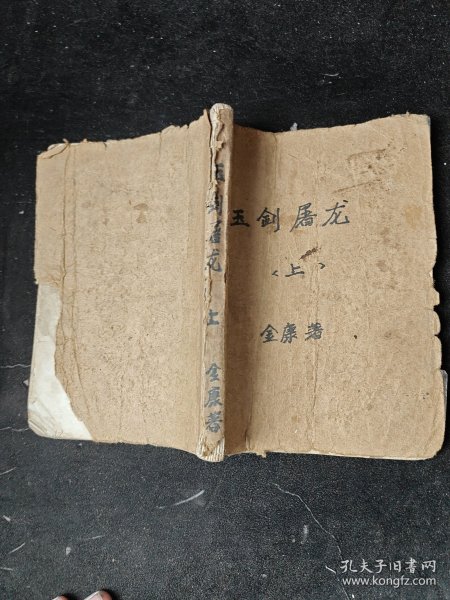 玉剑屠龙
〈上〉
金康著
玉剑屠龙 上 金康著
孔夫子旧书网
www.kongfz.com